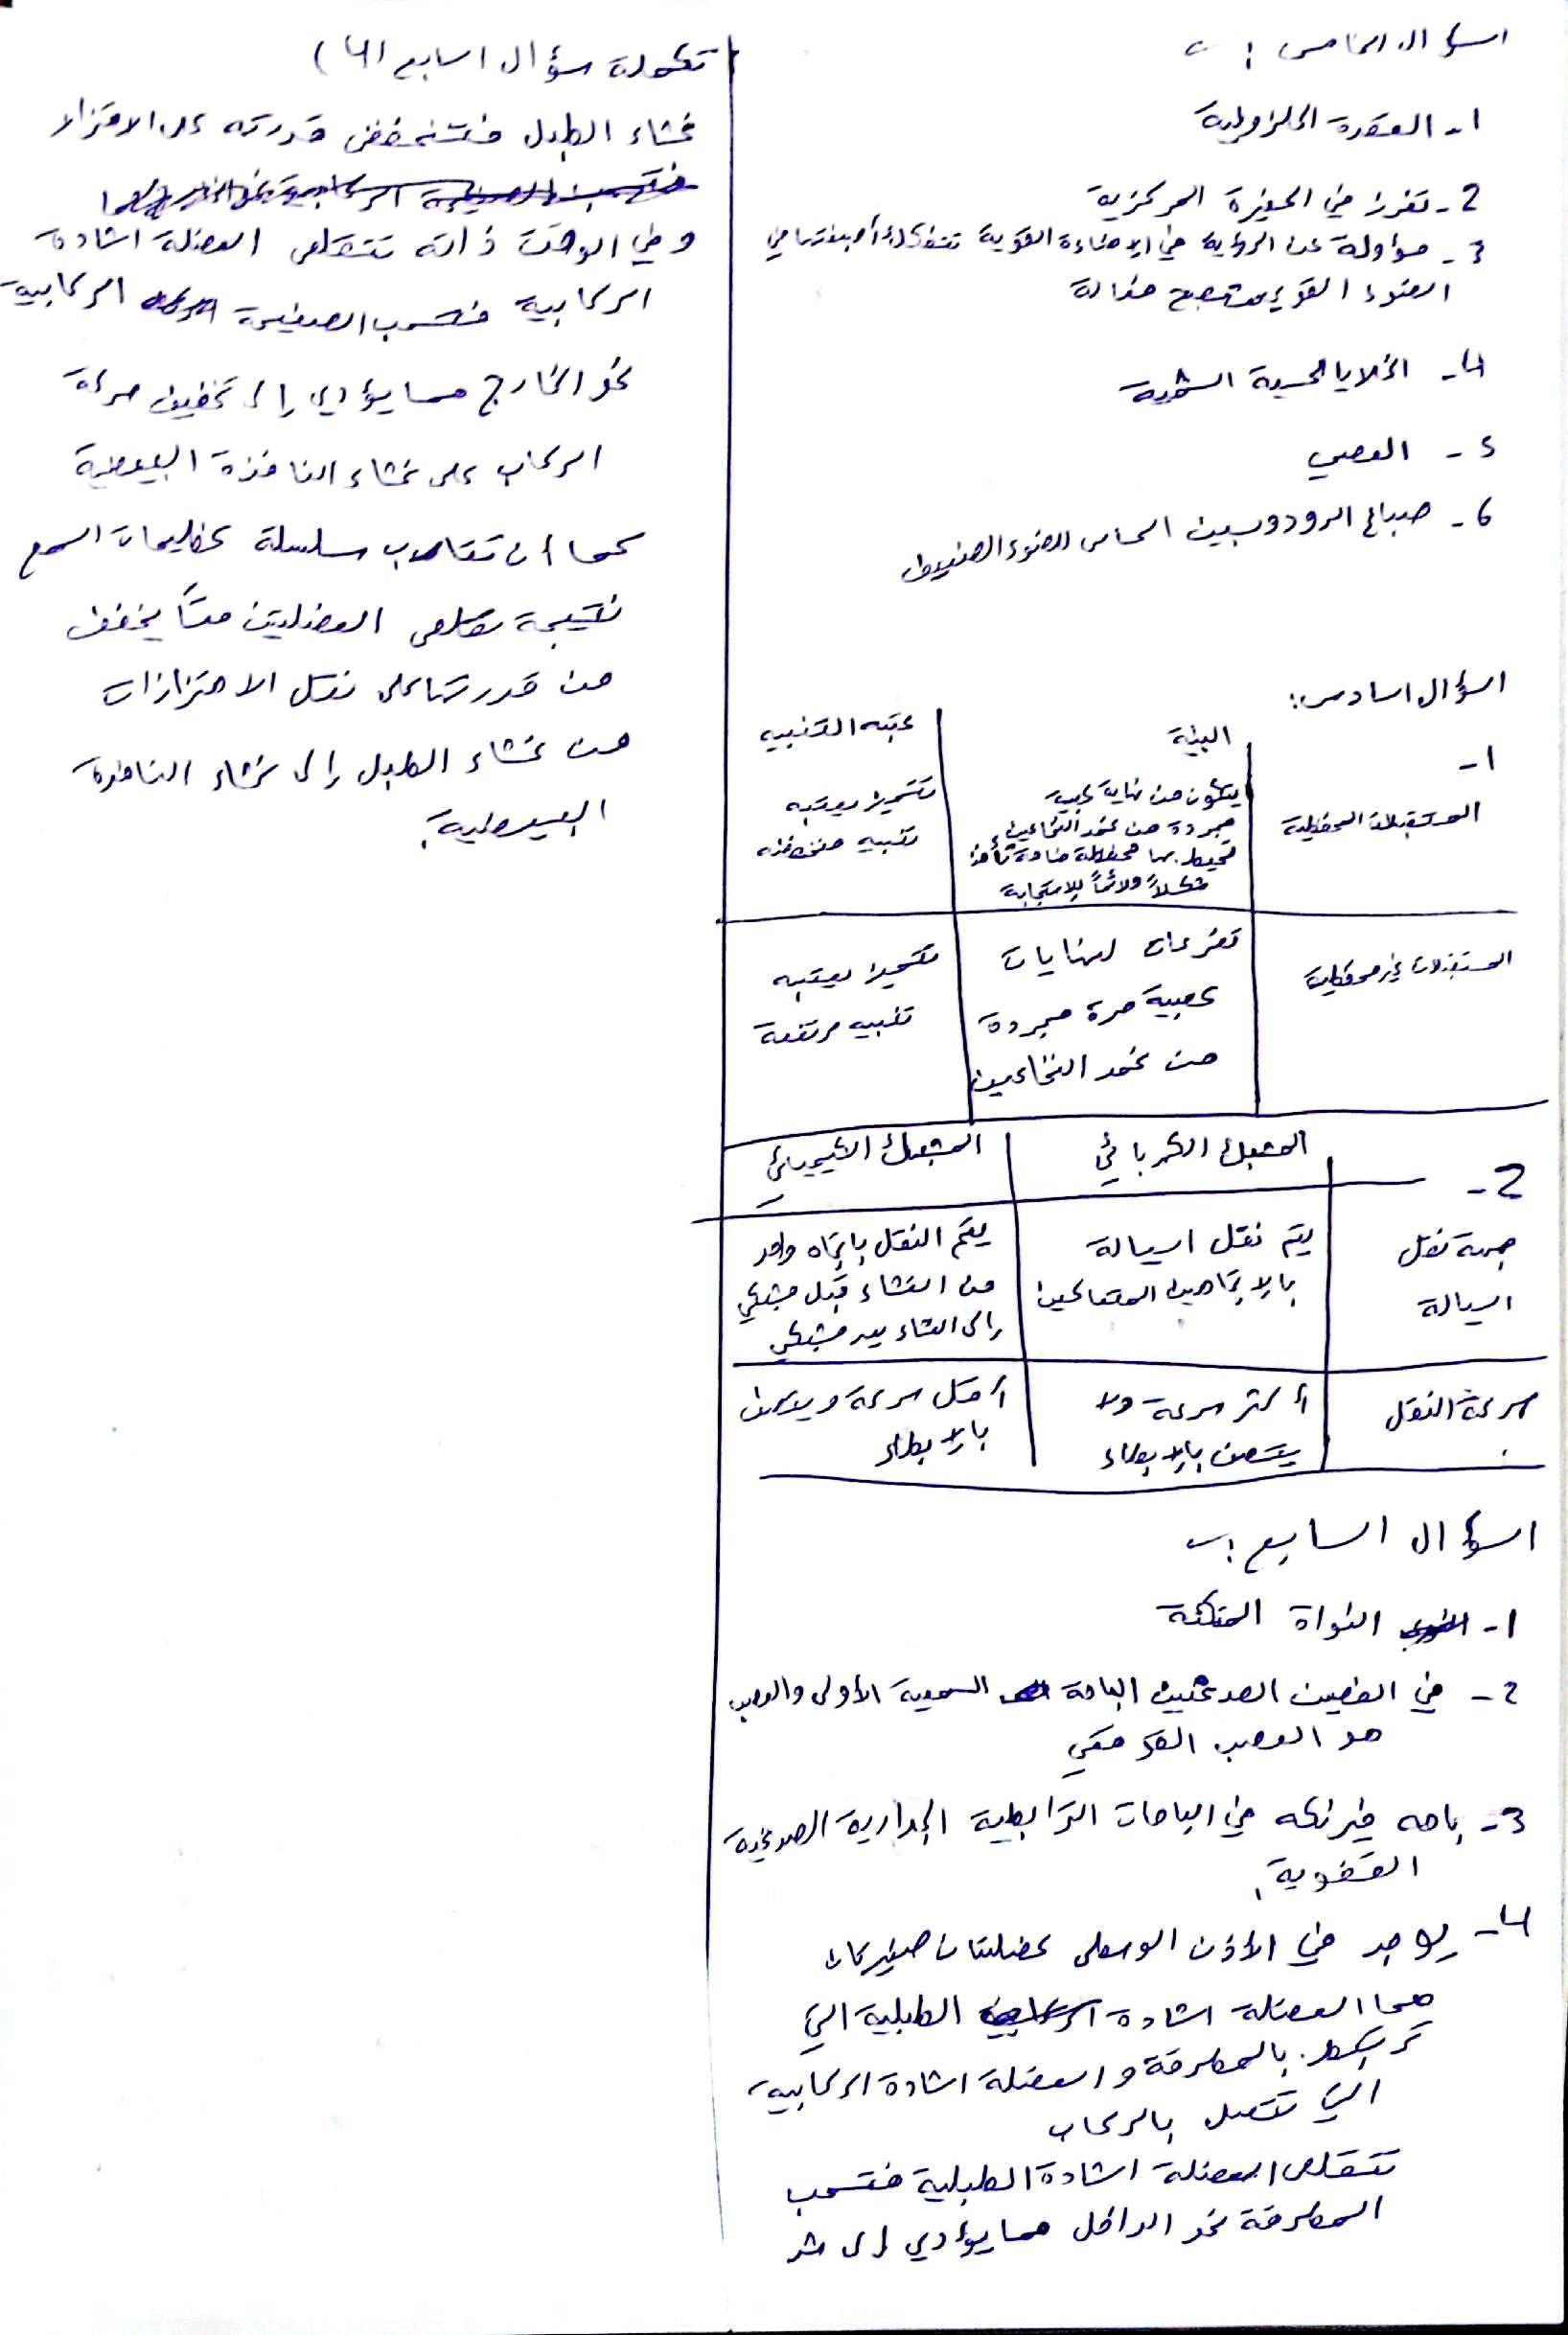 السؤال الخامس :
1- العقدة الحلزونية
2- تفرز في الحفيرة المركزية
3- مسؤولة عن الرؤية في الإضاءة القوية تتفكك أصبغتها في
الضوء القوي فتصبح فعالة
4- الخلايا الحسية الشمية
5- العصي
6- صباغ الرودوبسين الحساس للضوء الضعيف
السؤال السادس:
1-
البنية
عتبة التنبيه
المستقبلات المحفظية
يتكون من نهاية عصبية
مجردة من غمد النخاعين
تحيط بها محفظة ضامة تأخذ
شكلاً ملائماً للاستجابة
تتميز بعتبه
تنبيه منخفضه
المستقبلات غير محفظية
تفرعات لنهايات
عصبية حرة مجردة
من غمد النخاعين
تتميز بعتبه
تنبيه مرتفعة
2-
المشبك الكهربائي
المشبك الكيميائي
جهة نقل
السيالة
يتم نقل السيالة
بالاتجاهين المتعاكسين
يتم النقل باتجاه واحد
من الغشاء قبل مشبكي
إلى الغشاء بعد مشبكي
سرعة النقل
أكثر سرعة ولا
يتصف بالإبطاء
أقل سرعة ويتصف
بالإبطاء
السؤال السابع :
1- النواة المتكئة
2- في الفصين الصدغيين الباحة السمعية الأولى والعصب
هو العصب القوقعي
3- باحه فيرنكه في الباحات الترابطية الجدارية الصدغية
القفوية.
4- يوجد في الأذن الوسطى عضلتان صغيرتان
هما العضلة الشادة الطبلية التي
ترتبط بالمطرقة والعضلة الشادة الركابية
التي تتصل بالركاب
تتقلص العضلة الشادة الطبلية فتسحب
المطرقة نحو الداخل مما يؤدي إلى شد
تكملة سؤال السابع (4)
غشاء الطبل فتنخفض قدرته على الاهتزاز
وفي الوقت ذاته تتقلص العضلة الشادة
الركابية فتسحب الصفيحة الركابية
نحو الخارج مما يؤدي إلى تخفيف حركة
الركاب على غشاء النافذة البيضية
كما أن تقارب سلسلة عظيمات السمع
نتيجة تقلص العضلتين معاً يخفف
من قدرتها على نقل الاهتزازات
من غشاء الطبل إلى غشاء النافذة
البيضية.